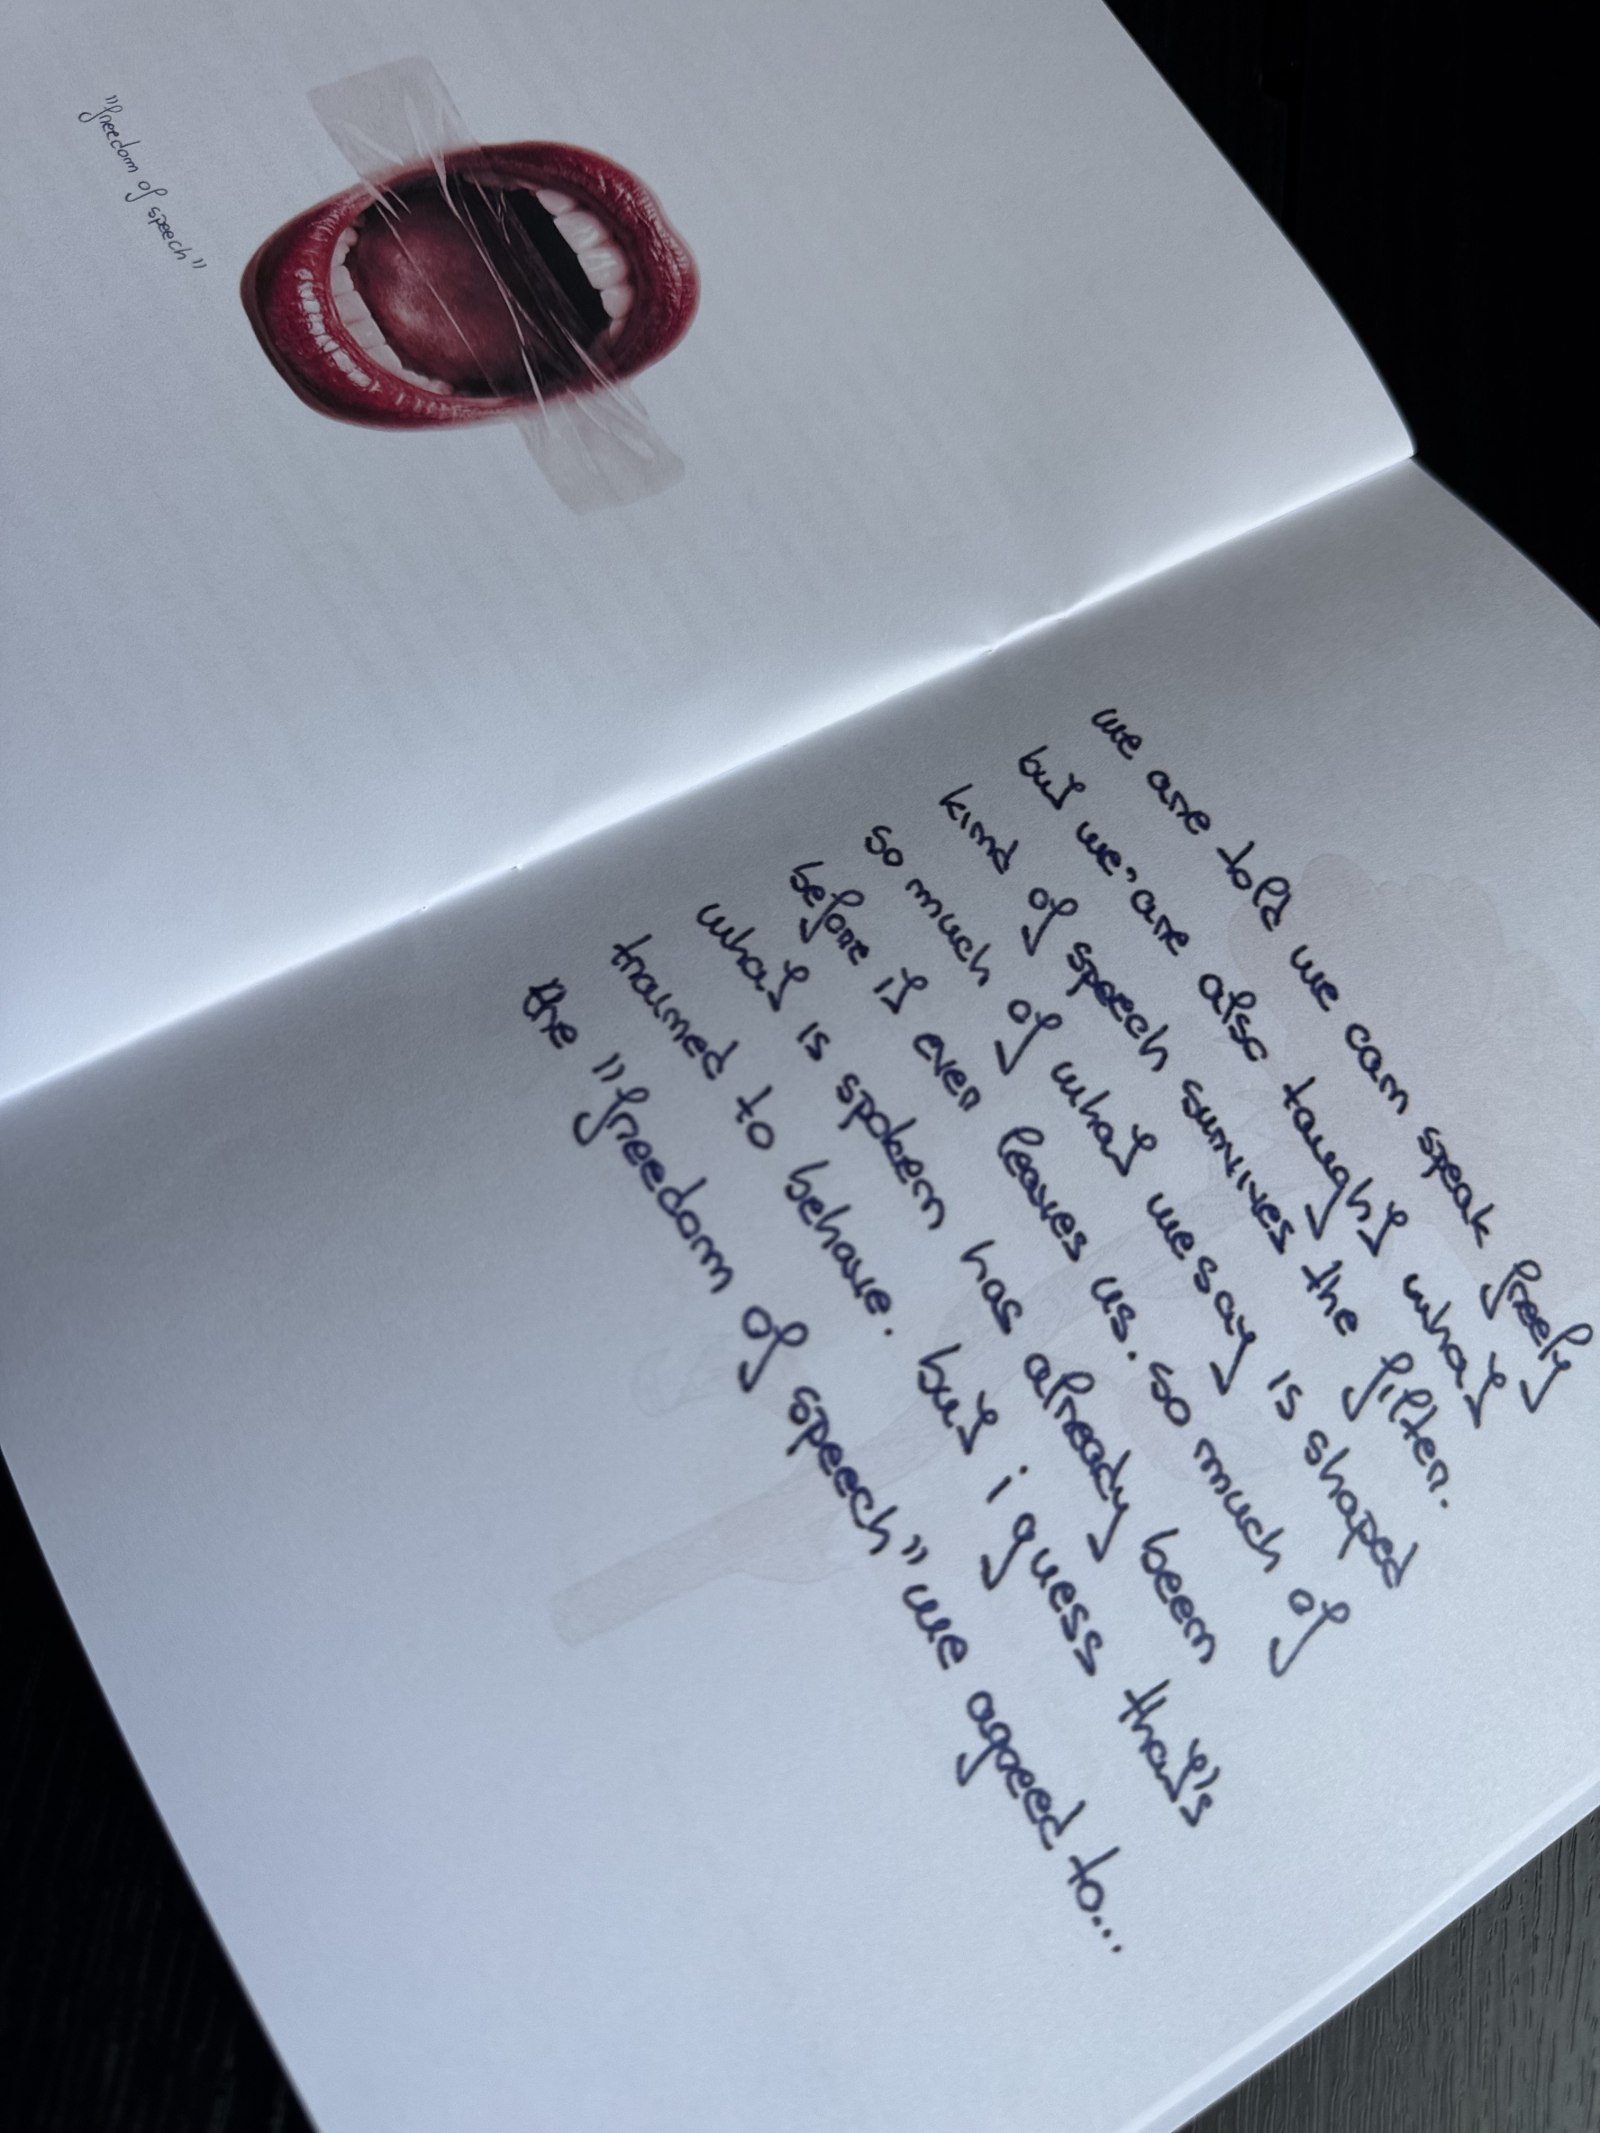 "freedom of speech"
we are told we can speak freely
but we are also taught what
kind of speech survives the filter.
so much of what we say is shaped
before it even leaves us. so much of
what is spoken has already been
trained to behave. but i guess that's
the "freedom of speech" we agreed to...